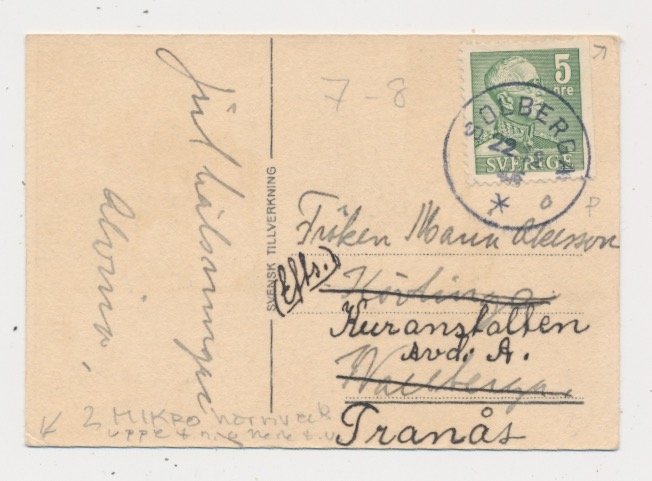 Jul hälsningar
Alvina.
SVENSK TILLVERKNING
7-8
5
öre
SVERIGE
SOLBERGA
22
Fröken Maria
(Efts.)
Kuranstalten
avd. A.
Tranås
2 MIKRO hörnveck
uppe t. h. o nere t. v.